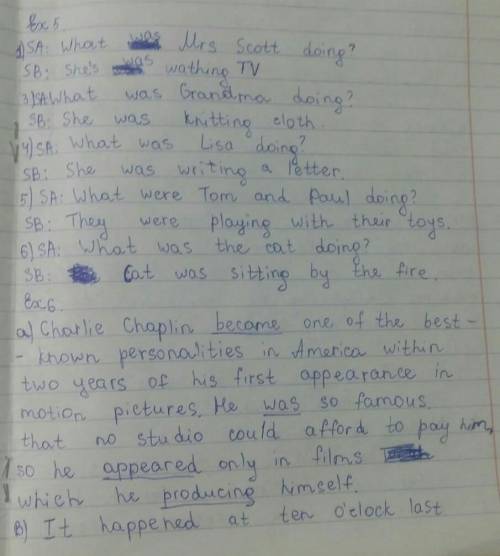 Ex 5.
2) SA: What was Mrs Scott doing?
SB: She's was wathing TV
3) SA What was Grandma doing?
SB: She was knitting cloth.
4) SA: What was Lisa doing?
SB: She was writing a letter.
5) SA: What were Tom and Paul doing?
SB: They were playing with their toys.
6) SA: What was the cat doing?
SB: Cat was sitting by the fire.
Ex 6.
a) Charlie Chaplin became one of the best-
- known personalities in America within
two years of his first appearance in
motion pictures. He was so famous.
that no studio could afford to pay him,
so he appeared only in films
which he producing himself.
B) It happened at ten o'clock last